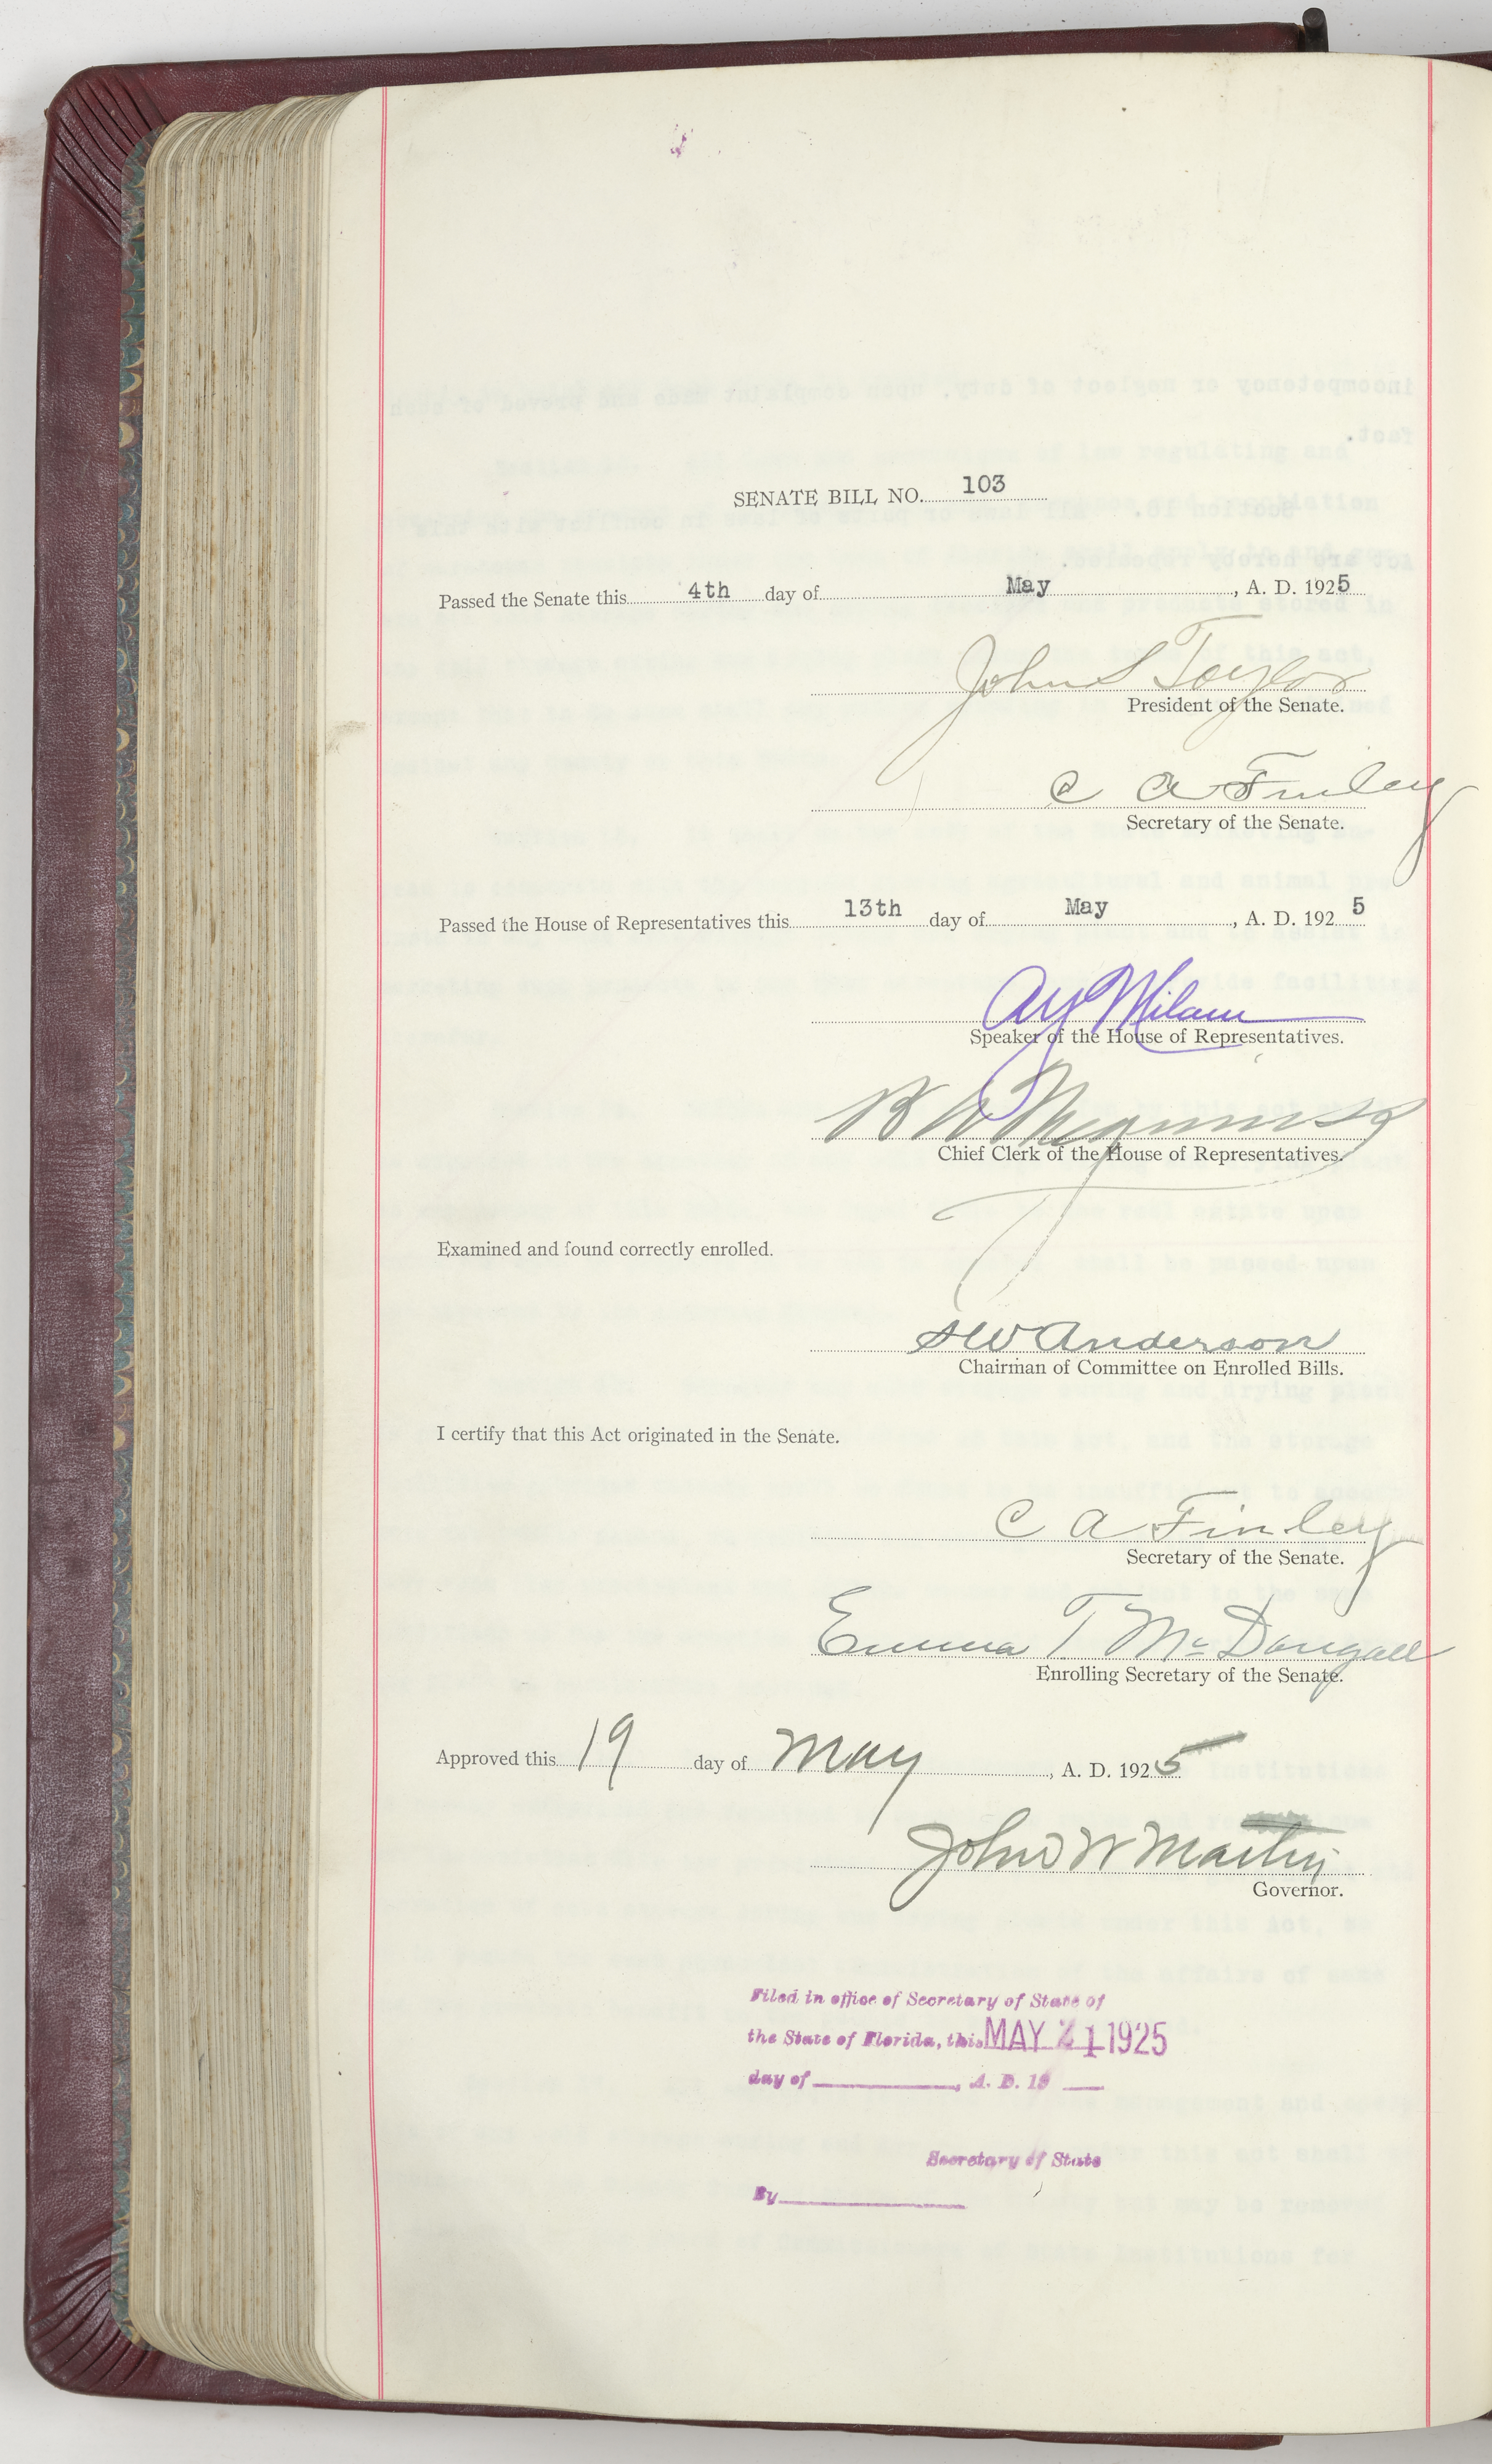 SENATE BILL NO. 103
Passed the Senate this 4th day of May, A. D. 1925
John S Taylor
President of the Senate.
C A Finley
Secretary of the Senate.
Passed the House of Representatives this 13th day of May, A. D. 1925
A Y Milam
Speaker of the House of Representatives.
B A
Chief Clerk of the House of Representatives.
Examined and found correctly enrolled.
S W Anderson
Chairman of Committee on Enrolled Bills.
I certify that this Act originated in the Senate.
C A Finley
Secretary of the Senate.
Emma T McDougall
Enrolling Secretary of the Senate.
Approved this 19 day of May, A. D. 1925
John W Martin
Governor.
Filed in office of Secretary of State of
the State of Florida, this MAY 21 1925
day of , A. D. 19
Secretary of State
By